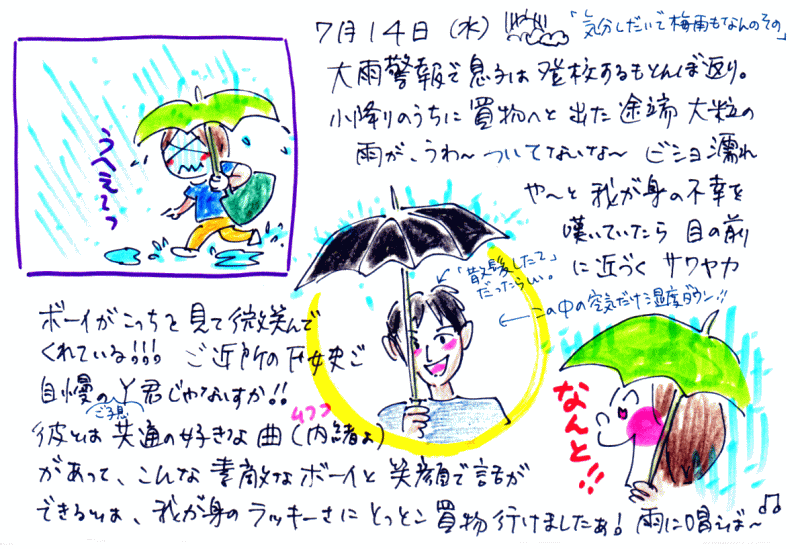 7月14日(水)
「気分しだいで梅雨もなんのその」
大雨警報で息子は登校するもとんぼ返り。
小降りのうちに買物へと出た途端大粒の
雨が、うわ〜ついてないな〜ビショ濡れ
や〜と我が身の不幸を
嘆いていたら目の前
に近づくサワヤカ
うへえーっ
「散髪したて」
だったらしい。
この中の空気だけ湿度ダウン!!
ボーイがこっちを見て微笑んで
くれている!!! ご近所の 女史ご
自慢のY君じゃないすか!!
ご子息
ムフフ
彼とは共通の好きな曲(内緒よ)
があって、こんな素敵なボーイと笑顔で話が
できるとは、我が身のラッキーさにとっとこ買物行けましたぁ! 雨に唄えば〜♫
なんと!!